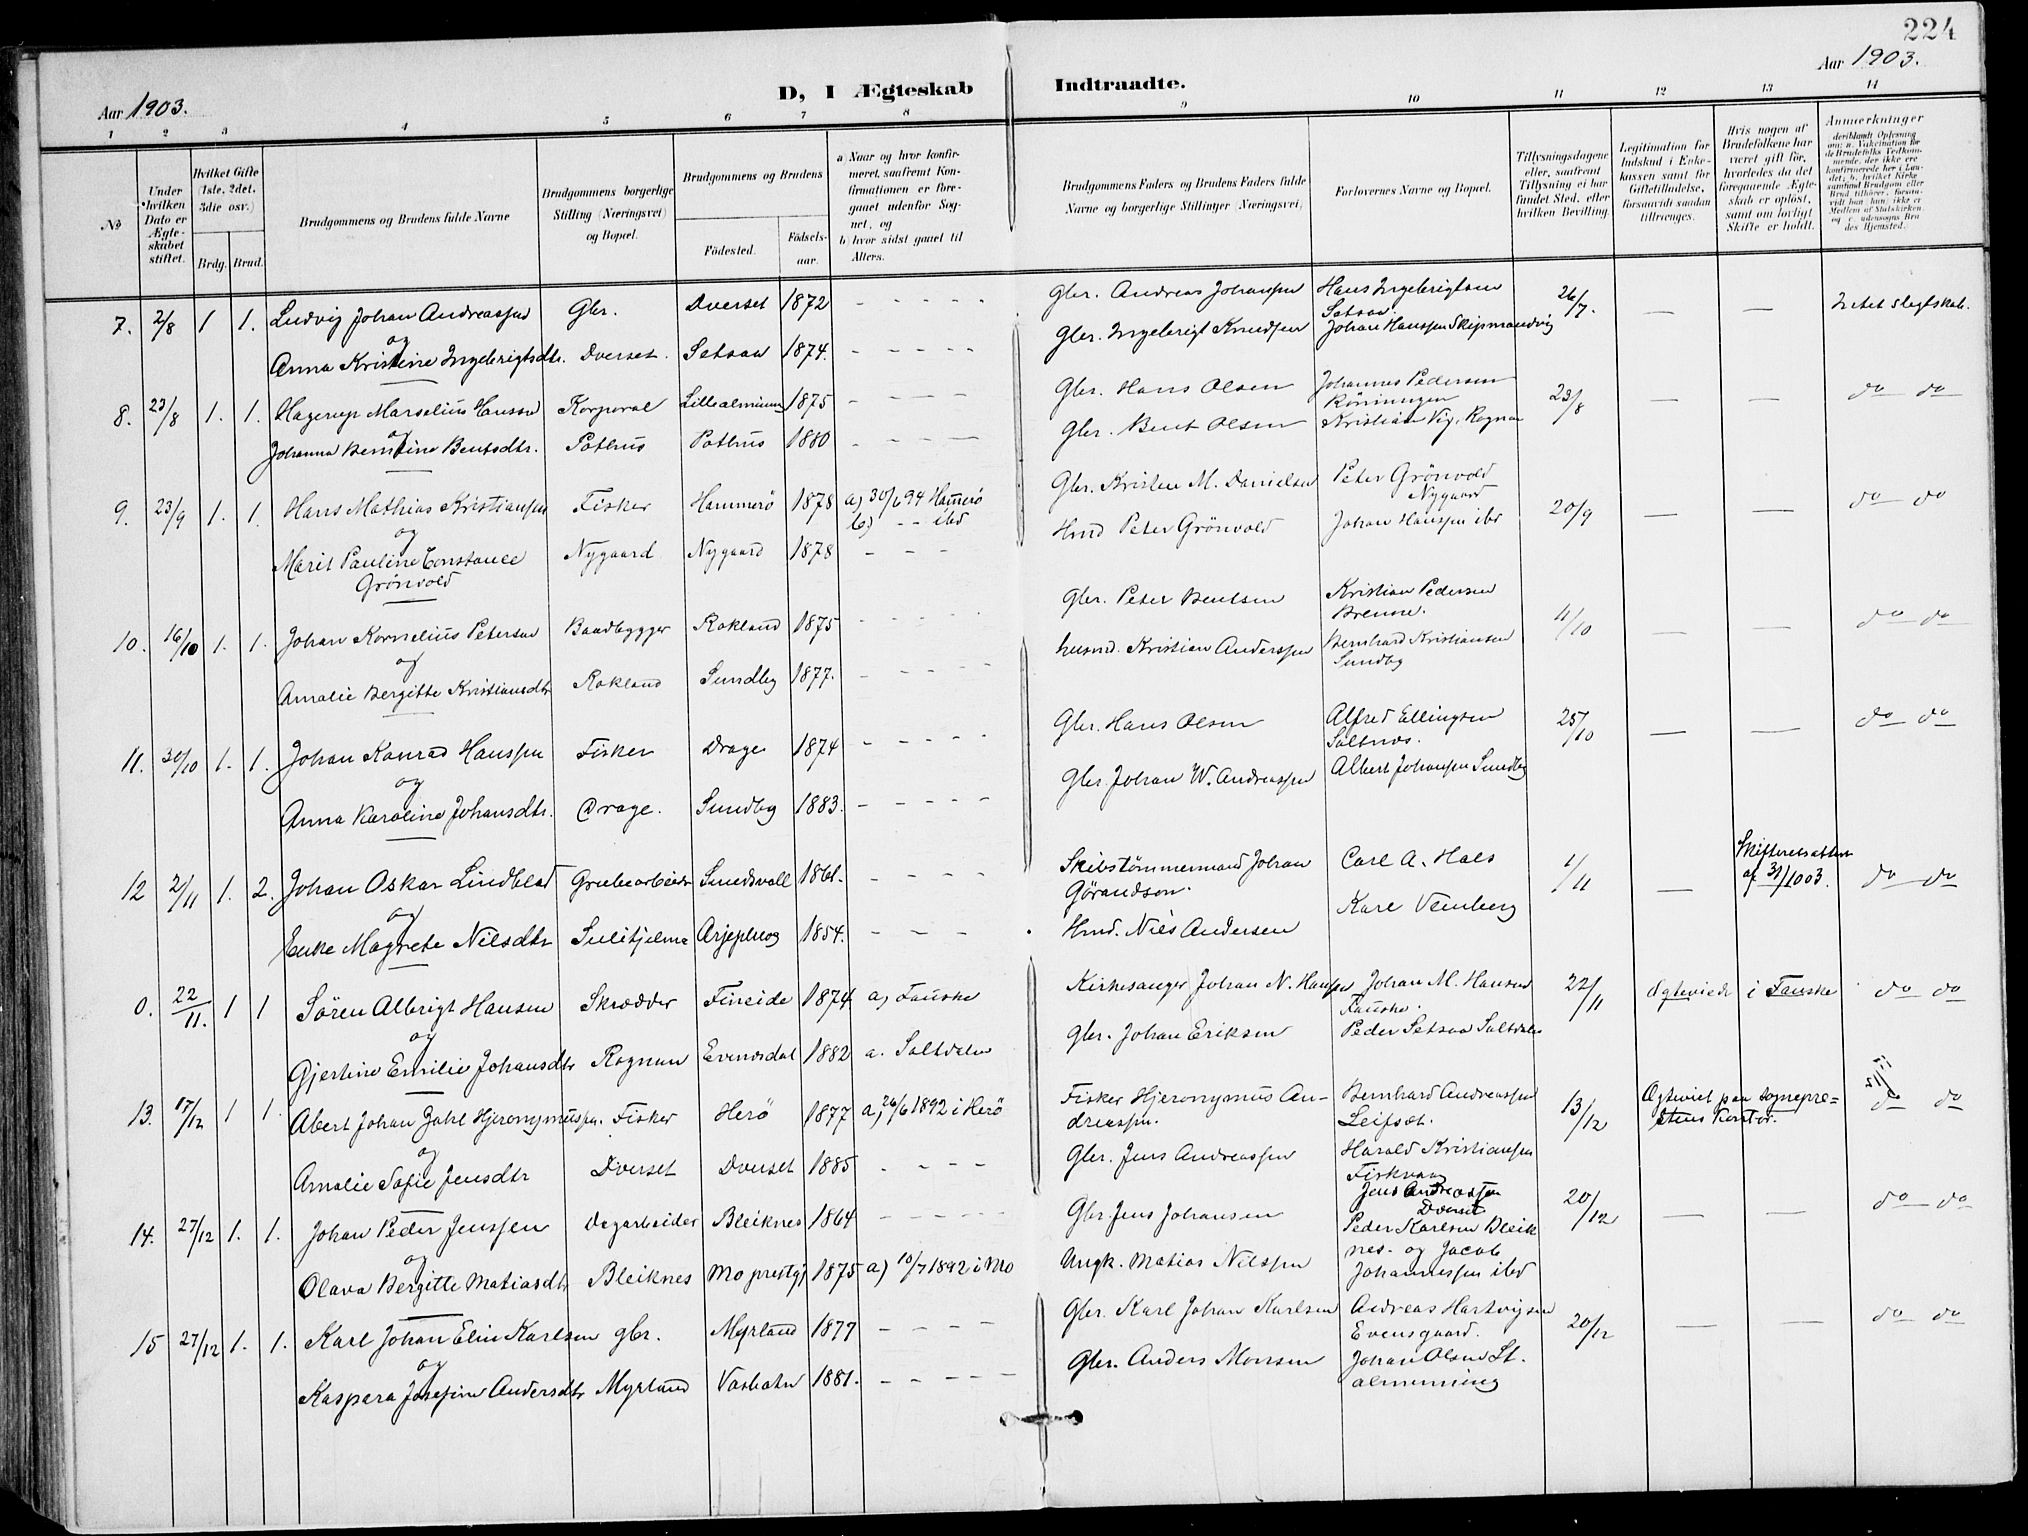 224
Aar 1903.
Aar 1903.
D, I Ægteskab Indtraadte.
1 2 3 4 5 6 7 8 9 10 11 12 13 14
No
Under hvilken Dato er Ægteskabet stiftet.
Hvilket Gifte (1ste, 2det, 3die osv.)
Brdg. Brud.
Brudgommens og Brudens fulde Navne
Brudgommens borgerlige Stilling (Næringsvei) og Bopæl.
Brudgommens og Brudens
Fødested. Fødselsaar.
a Naar og hvor konfirmeret, saafremt Konfirmationen er foregaaet udenfor Sognet, og
b) hvor sidst gaaet til Alters.
Brudgommens Faders og Brudens Faders fulde Navne og borgerlige Stillinger (Næringsvei)
Forlovernes Navne og Bopæl.
Tillysningsdagene eller, saafremt Tillysning ei har fundet Sted, efter hvilken Bevilling.
Legitimation for Indskud i Enkekassen samt for Giftetilladelse, forsaavidt saadan tiltrænges.
Hvis nogen af Brudefolkene har været gift før, hvorledes da det foregaaende Ægteskab er opløst, samt om lovligt Skifte er holdt.
Anmerkninger
deriblandt Oplysning om: a. Vakcination for de Brudefolks Vedkommende, der ikke ere konfirmerede her i Landet; b. hvilket Kirkesamfund Brudgom eller Brud tilhører, forsaavidt han (hun) ikke er Medlem af Statskirken, og c. udensogns Brudes Hjemsted.
7. 2/8 1 1. Ludvig Johan Andreassen Gbr. Dverset 1872 - - - - - Gbr. Andreas Johansen Hans Ingebrigtsen Setsaa. 26/7. — — Intet slegtskab.
og
Anna Kristine Ingebrigtsdtr. Dverset. Setsaa 1874. - - - - - Gbr. Ingebrigt Knudsen Johan Hanssen Skipmandvig
8. 23/8 1. 1. Hagerup Marselius Hanssen Korporal Lillealminn 1875 - - - - Gbr. Hans Olsen Johannes Pedersen Röniningen 23/8 — — do do
og
Johanna Berntine Bentsdtr. Pothus Pothus 1880 - - - - Gbr. Bent Olsen Kristian Vig, Rognan
9. 23/9 1. 1. Hans Mathias Kristiansen Fisker Hammerö 1878 a) 30/6 94 Hamerö b) -- ibd Gbr. Kristen M. Danielsen Peter Grönvold Nygaard 20/9 — — do do
og
Marit Pauline Constance Grönvold Nygaard Nygaard 1878 - - - Hmd Peter Grönvold Johan Hanssen ibd
10. 16/10 1. 1. Johan Kornelius Petersen Baadbygger Rokland 1875 - - - - Gbr. Peter Bentsen Kristian Pedersen Brenne. 11/10 — — do do
og
Amalie Bergitte Kristiansdtr Rokland Sundby 1877. - - - - husmd. Kristian Anderssen Bernhard Kristiansen Sundby
11. 30/10 1. 1. Johan Konrad Hanssen Fisker Drage 1874 - - - - - Gbr. Hans Olsen Alfred Ellingsen Saltnes. 25/10 — — do do
og
Anna Karoline Johansdtr. Drage. Sundby 1883. - - - - - Gbr Johan W. Andreassen Albert Johansen Sundby
12 2/11 1. 2. Johan Oskar Lindblad Grubearbeider Sundsvall 1861. - - - - Skibstömmermand Johan Görandson. Carl A. Hals 1/11 — Skifteretsattest af 31/10 03. do do
og
Enke Magrete Nilsdtr Sulitjelma Arjeplog 1854. - - - Hmd. Nils Andersen Karl Vemberg
0. 22/11. 1 1 Sören Albrigt Hansen Skrædder Fineide 1874 a) Fauske Kirkesanger Johan N. Hansen Johan M. Hansen Fauske 22/11 Ægteviedt i Fauske do do
og
Gjertine Emilie Johansdtr Rognan Evensdal 1882 a. Saltdalen Gbr. Johan Eriksen Peder Setsaa Saltdalen
13. 17/12 1 1. Abert Johan Zahl Hjeronymussen. Fisker Herö 1877 a) 26/6 1892 i Herö Fisker Hjeronymus Andreassen. Bernhard Andreassen Leifset. 13/12 Ægteviet paa sogneprestens kontor. 17/12 do do
og
Amalie Sofie Jensdtr Dverset Dverset 1885 - - - - Gbr. Jens Andreassen Harald Kristiansen Fiskvaag Jens Andreassen Dverset
14. 27/12 1. 1. Johan Peder Jenssen Dagarbeider Bleiknes 1864 - - - - - Gbr. Jens Johansen Peder Karlsen Bleiknes. og Jacob 20/12 — — do do
og
Olava Bergitte Matiasdtr Bleiknes Mo prestgj 1875 a) 10/7 1892 i Mo Ungk. Matias Nilssen Johannessen ibd
15 27/12 1. 1. Karl Johan Elin Karlsen gbr. Myrland 1877 - - - - Gbr. Karl Johan Karlsen Andreas Hartvigsen Evensgaard. 20/12 — — do do
og
Kaspara Josefine Andersdtr Myrland Vasbotn 1881. - - - - - Gbr. Anders Monsen Johan Olsen St. almenning